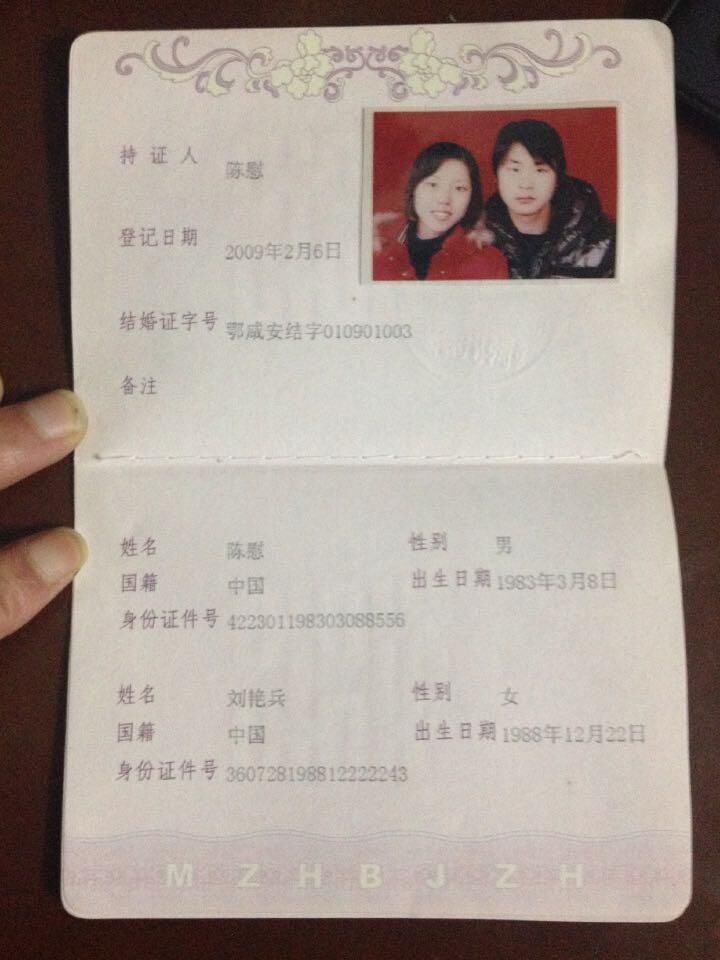 持证人 陈慰
登记日期 2009年2月6日
结婚证字号 鄂咸安结字010901003
备注
姓名 陈慰 性别 男
国籍 中国 出生日期 1983年3月8日
身份证件号 422301198303088556
姓名 刘艳兵 性别 女
国籍 中国 出生日期 1988年12月22日
身份证件号 360728198812222243
MZHBJZH